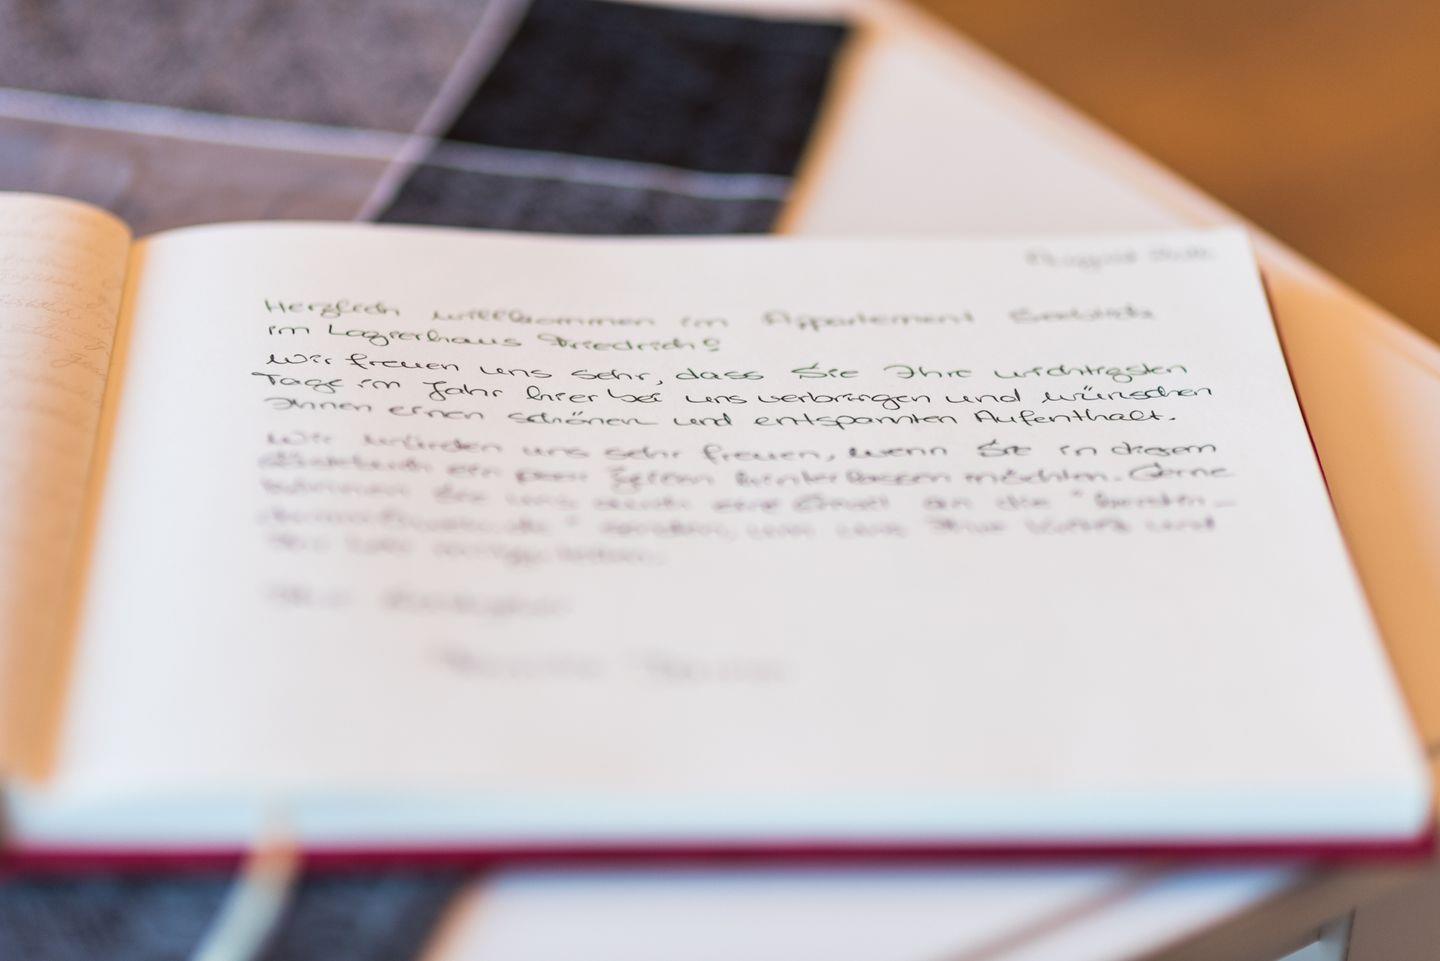 August
Herzlich willkommen im Appartement Seeblick
im Logierhaus Friedrich!
Wir freuen uns sehr, dass Sie Ihre wichtigsten
Tage im Jahr hier bei uns verbringen und wünschen
Ihnen einen schönen und entspannten Aufenthalt.
Wir würden uns sehr freuen, wenn Sie in diesem
Gästebuch ein paar Zeilen hinterlassen möchten. Gerne
können Sie uns auch eine Email an die
senden, um uns Ihre Kritik und
Ihr Lob mitzuteilen.
Ihre Gastgeber